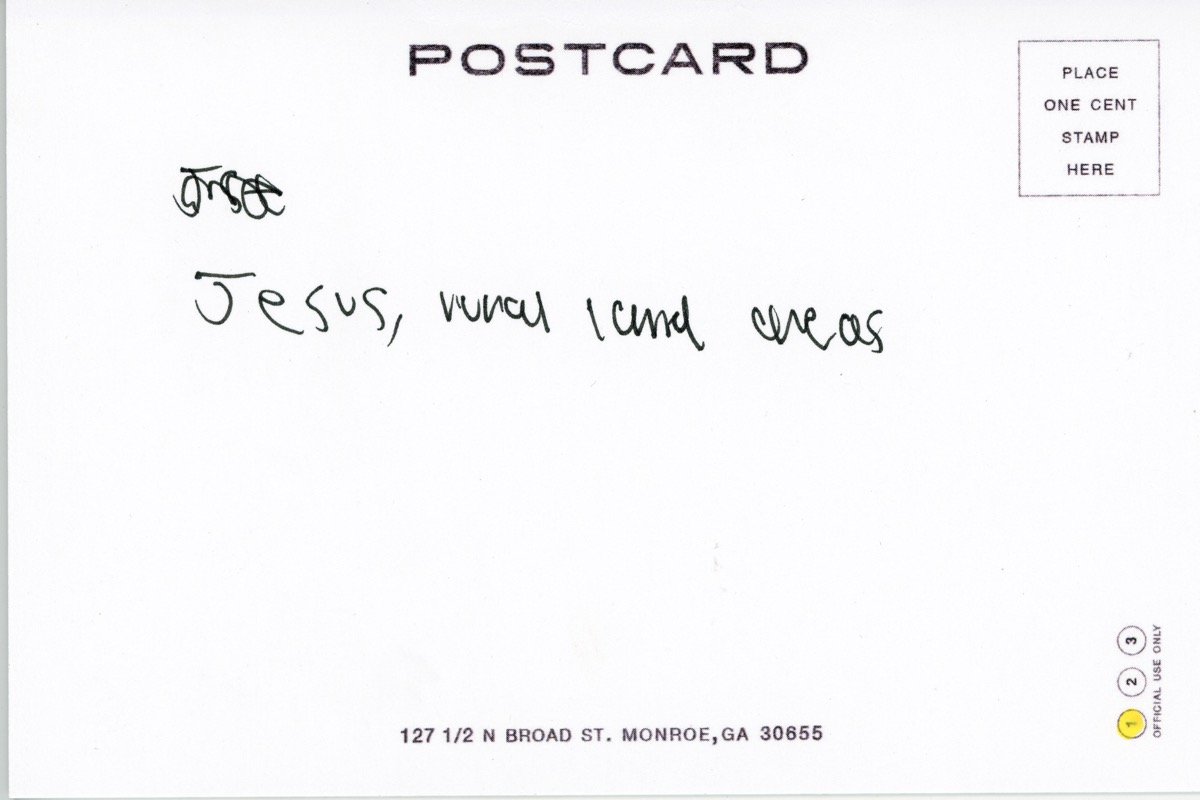 POSTCARD
PLACE
ONE CENT
STAMP
HERE
Jesus, rural land areas
3
2
1
OFFICIAL USE ONLY
127 1/2 N BROAD ST. MONROE, GA 30655